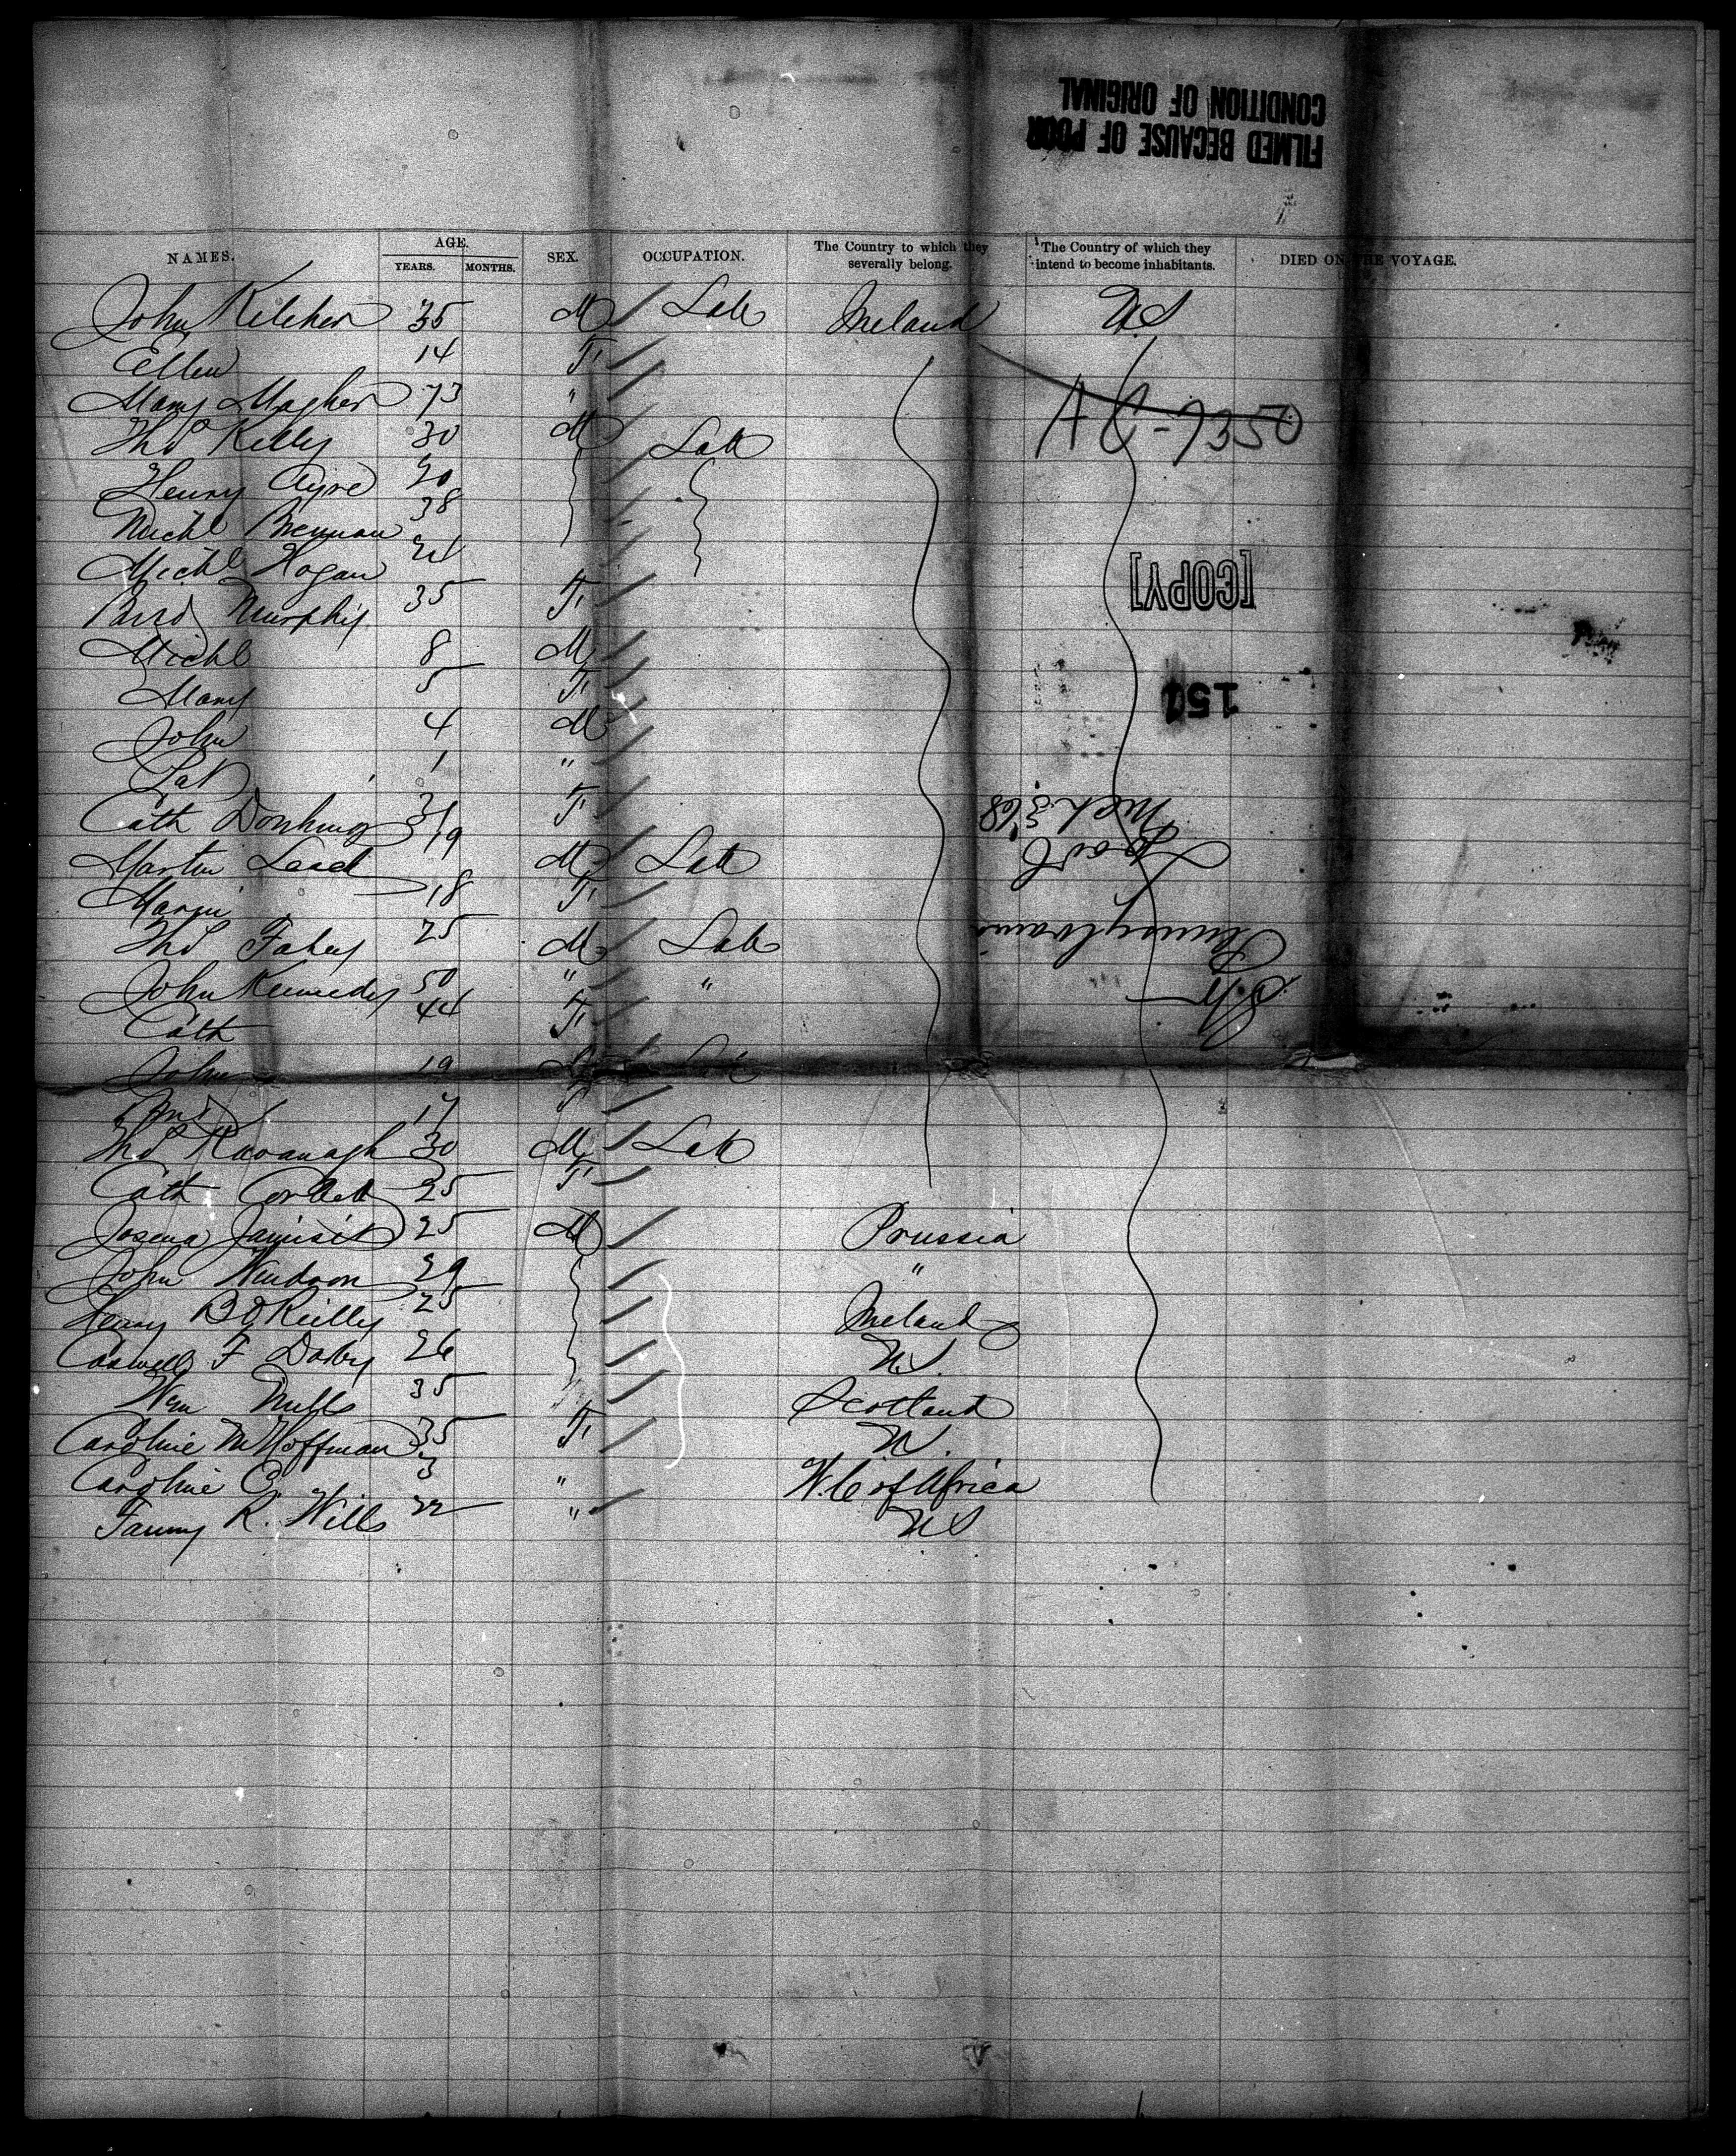 FILMED BECAUSE OF POOR
CONDITION OF ORIGINAL
NAMES. AGE. YEARS. MONTHS. SEX. OCCUPATION. The Country to which they severally belong. The Country of which they intend to become inhabitants. DIED ON THE VOYAGE.
John Kelcher 35 M Lab Ireland U.S
Ellen 14 F
Mary Magher 73 "
AC-7350
Thos Kelly 30 M Lab
Henry Ayre 20
Michl Brennan 38
Michl Hogan 21
[COPY]
Murphy 35 F
Michl 8 M
Mary 5 F
154
John 4 M
Pat 1 "
Cath 31 F
Mch 3/68
Martin 19 M Lab
Maria 18 F
Thos Fahey 25 M Lab
Pennsylvania
John Kennedy 50 " "
S.S.
Cath 44 F
John 19 Lab
17 F
Thos Kavanagh 30 M Lab
Cath Corbett 25 F
25 M Prussia
John 29 "
Henry B O'Reilly 25 Ireland
Caswell F Darby 26 U.S.
Wm Mills 35 Scotland
Caroline M Hoffman 35 F U.
Caroline C. 3 " W. C of Africa
Fanny R. Wills 22 " U S